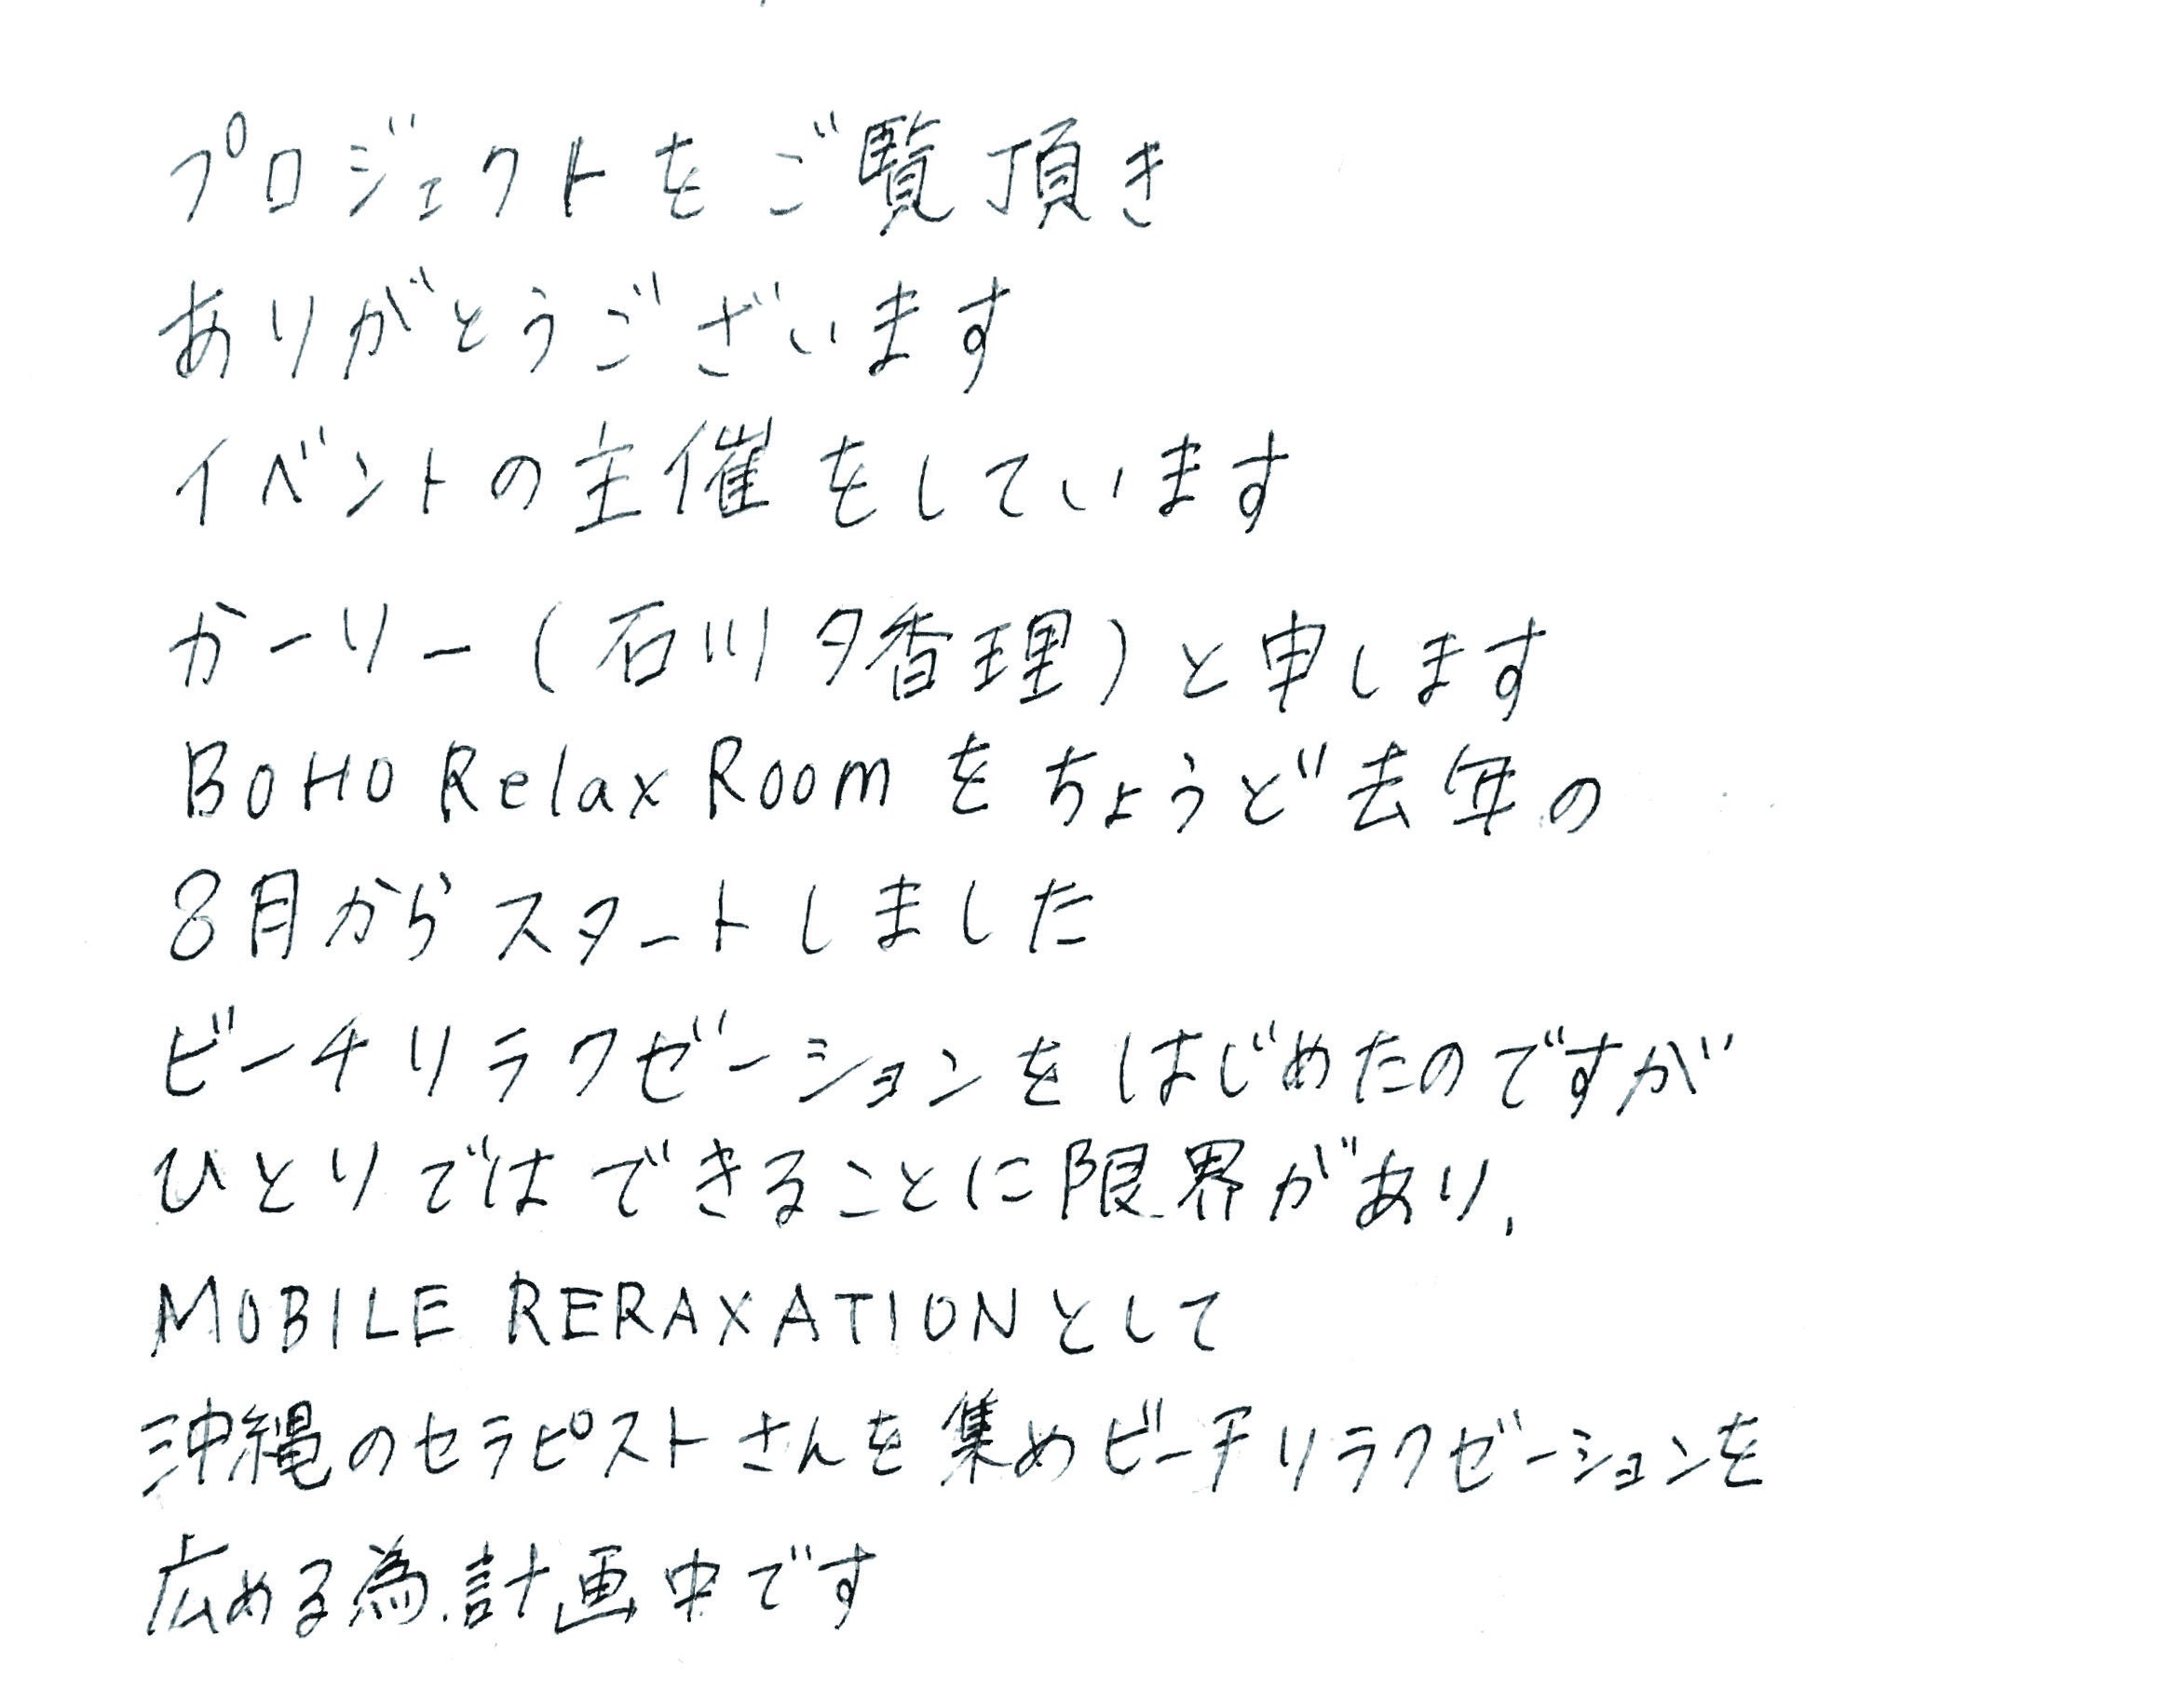 プロジェクトをご覧頂き
ありがとうございます
イベントの主催をしています
かーりー(石川夕香理)と申します
BOHO Relax Roomをちょうど去年の
8月からスタートしました
ビーチリラクゼーションをはじめたのですが
ひとりではできることに限界があり、
MOBILE RERAXATIONとして
沖縄のセラピストさんを集めビーチリラクゼーションを
広める為、計画中です